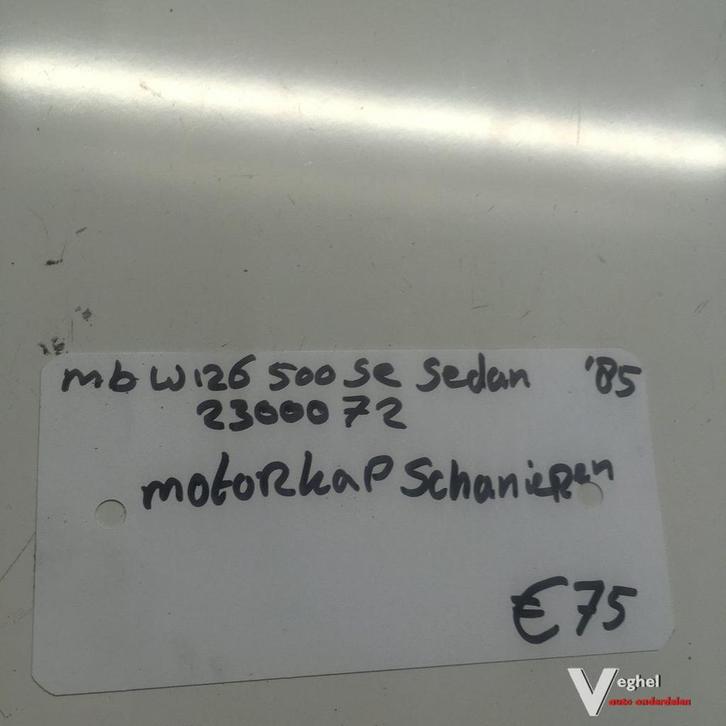 mb W126 500 Se Sedan '85
2300072
motoRkaP SchanieRen
€75
Veghel
auto onderdelen